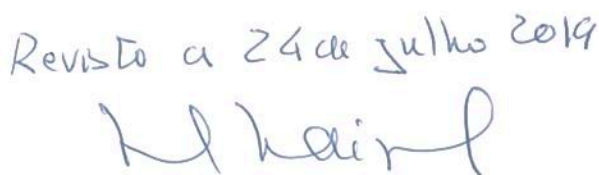 Revisto a 24 de julho 2019